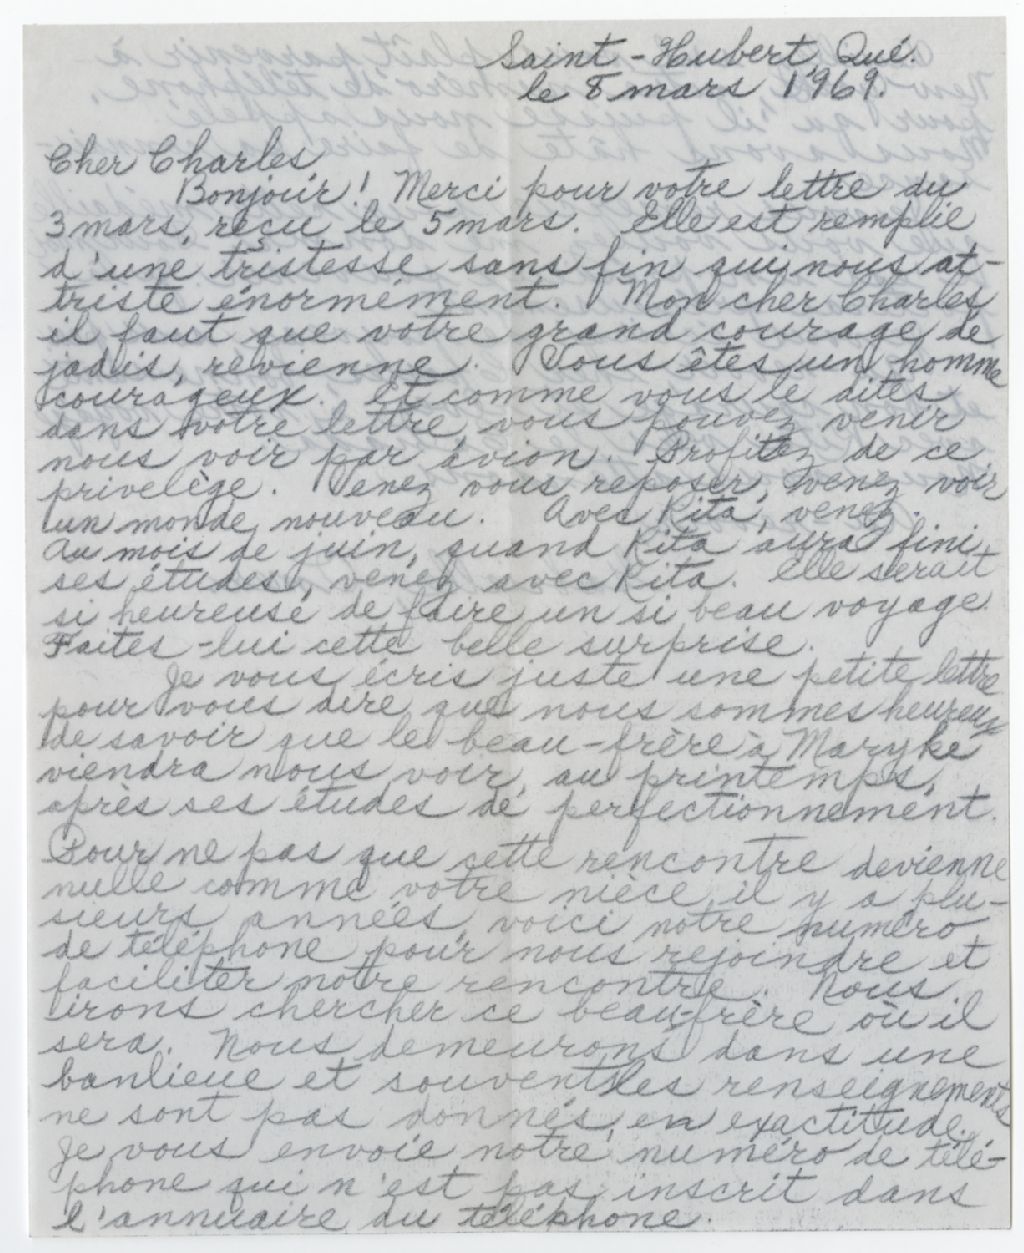 Saint-Hubert Qué.
le 8 mars 1969.
Cher Charles
Bonjour! Merci pour votre lettre du
3 mars, reçu le 5 mars. Elle est remplie
d'une tristesse sans fin qui nous at-
triste énormément. Mon cher Charles
il faut que votre grand courage de
jadis, revienne. Vous êtes un homme
courageux. Et comme vous le dites
dans votre lettre, vous pouvez venir
nous voir par avion. Profitez de ce
privelège. Venez vous reposer, venez voir
un monde nouveau. Avec Rita, venez.
Au mois de juin, quand Rita aura fini
ses études, venez avec Rita. Elle serait
si heureuse de faire un si beau voyage.
Faites-lui cette belle surprise.
Je vous écris juste une petite lettre
pour vous dire que nous sommes heureux
de savoir que le beau-frère à Maryke
viendra nous voir, au printemps,
après ses études de perfectionnement.
Pour ne pas que cette rencontre devienne
nulle comme votre nièce, il y a plu-
sieurs années, voici notre numéro
de téléphone pour nous rejoindre et
faciliter notre rencontre. Nous
irons chercher ce beau-frère où il
sera. Nous demeurons dans une
banlieue et souvent les renseignements
ne sont pas donnés en exactitude.
Je vous envoie notre numéro de télé-
phone qui n'est pas inscrit dans
l'annuaire du téléphone.